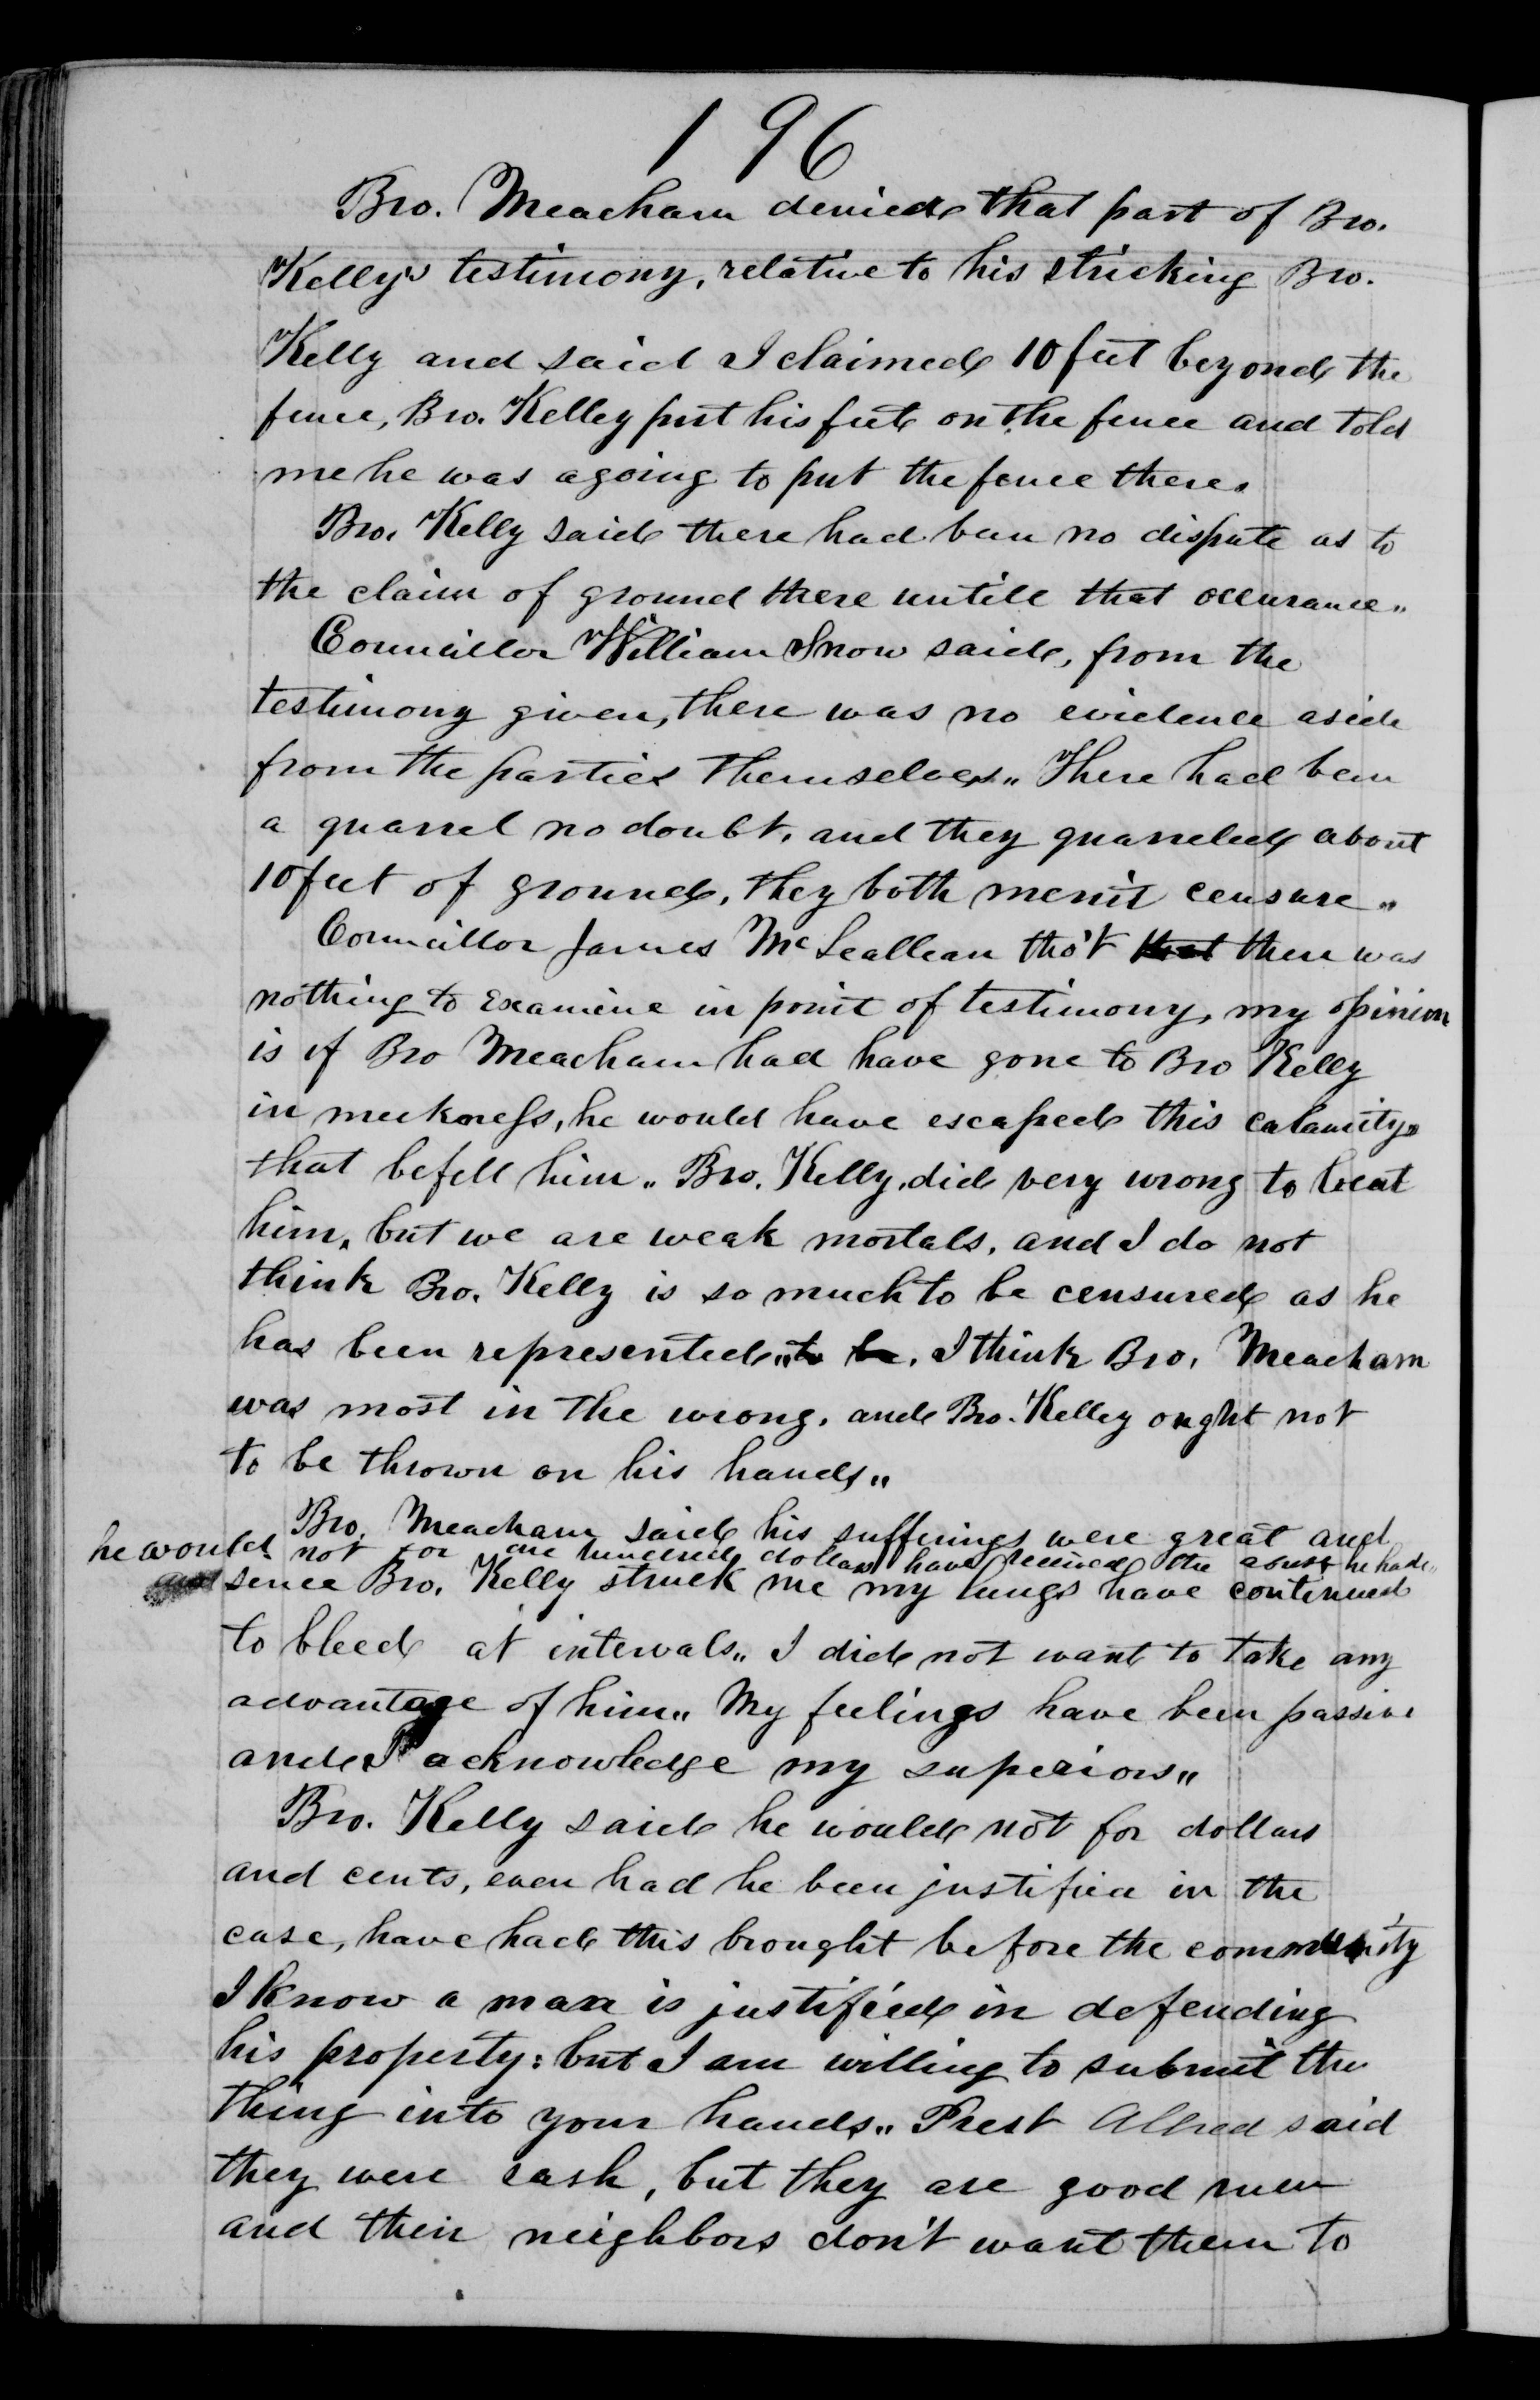 196
Bro. Meacham denied that part of Bro.
Kelly's testimony, relative to his stricking Bro.
Kelly and said I claimed 10 feet beyond the
fence, Bro. Kelley put his feet on the fence and told
me he was agoing to put the fence there.
Bro. Kelly said there had been no dispute as to
the claim of ground there untill that occurance„
Councillor William Snow said, from the
testimony given, there was no evidence aside
from the parties themselves„ There had been
a quarrel no doubt, and they quarreled about
10 feet of ground, they both merit censure„
Councillor James McLeallean tho't that there was
nothing to examine in point of testimony, my opinion
is if Bro Meacham had have gone to Bro Kelly
in meekness, he would have escaped this calamity„
that befell him„ Bro. Kelly did very wrong to beat
him, but we are weak mortals, and I do not
think Bro. Kelly is so much to be censured as he
has been represented„ to be, I think Bro. Meacham
was most in the wrong, and Bro. Kelley ought not
to be thrown on his hands„
Bro. Meacham said his sufferings were great and
he would not for one hundred dollars have received the abuse he had„
and sence Bro. Kelly struck me my lungs have continued
to bleed at intervals„ I did not want to take any
advantage of him„ My feelings have been passive
and I acknowledge my superiors„
Bro. Kelly said he would not for dollars
and cents, even had he been justified in the
case, have had this brought before the community
I know a man is justified in defending
his property: but I am willing to submit the
thing into your hands„ Prest Alfred said
they were rash, but they are good men
and their neighbors don't want them to